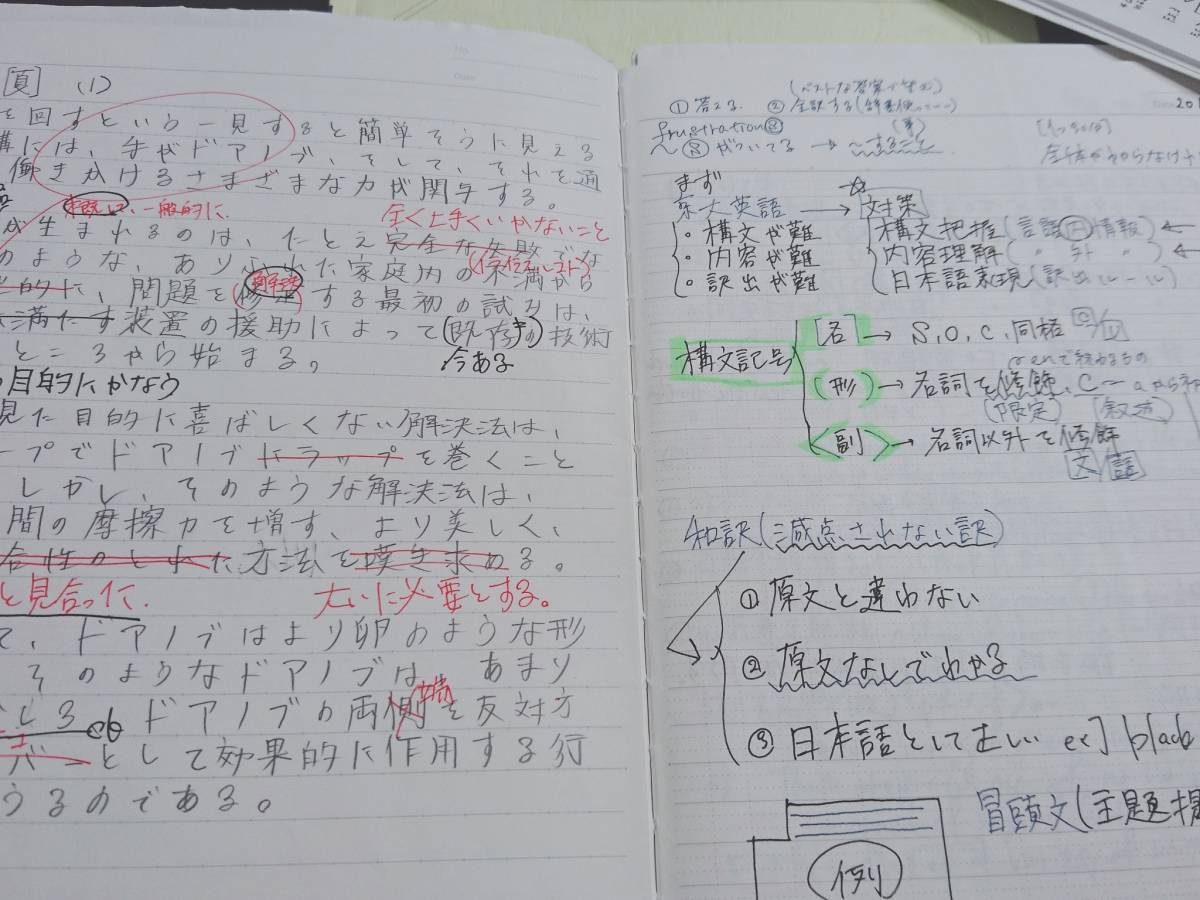 [頁] (1)
を回すという一見すると簡単そうに見える
構には、手やドアノブ、そして、それを通
働きかけるさまざまな力が関与する。
概して、一般的に.
全く上手くいかないこと
生まれるのは、たとえ完全な失敗でな
のような、ありふれた家庭内の不満から
的に、問題を修理する最初の試みは、
解決
満たす装置の援助によって(既存の)技術
ところから始まる。
今ある
目的にかなう
見た目的に喜ばしくない解決法は、
ープでドアノブにラップを巻くこと
しかし、そのような解決法は、
間の摩擦力を増す、より美しく、
合性のとれた方法を嘆き求める。
と見合った.
大いに必要とする。
て、ドアノブはより卵のような形
そのようなドアノブは、あまり
ドアノブの両側を反対方
端
バーとして効果的に作用する行
うるのである。
① 答える. ② 全訳する
frustration
〜がついてる → 〜すること
まず
東大英語 → 対策
。構文が難
。内容が難
。訳出が難
構文把握(言語内情報) ←
内容理解(〃 外 〃) ←
日本語表現(訳出ルール)
構文記号
[名] → S, O, C, 同格
(形) → 名詞を修飾、C
(限定) (叙述)
<副> → 名詞以外を修飾
文/語
和訳(減点されない訳)
① 原文と違わない
② 原文なしでわかる
③ 日本語として正しい ex] black
冒頭文(主題提
例